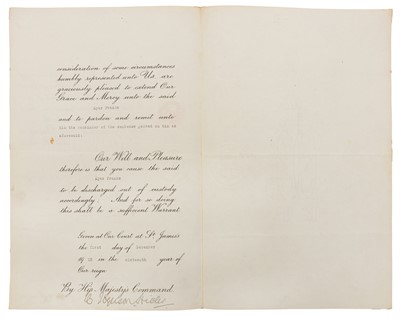 consideration of some circumstances
humbly represented unto Us, are
graciously pleased to extend Our
Grace and Mercy unto the said
and to pardon and remit unto
him the remainder of the sentence passed on him as
aforesaid:
Our Will and Pleasure
therefore is that you cause the said
to be discharged out of custody
accordingly; And for so doing
this shall be a sufficient Warrant.
Given at Our Court at St James's
the day of December
19 in the year of
Our reign.
By His Majesty's Command.